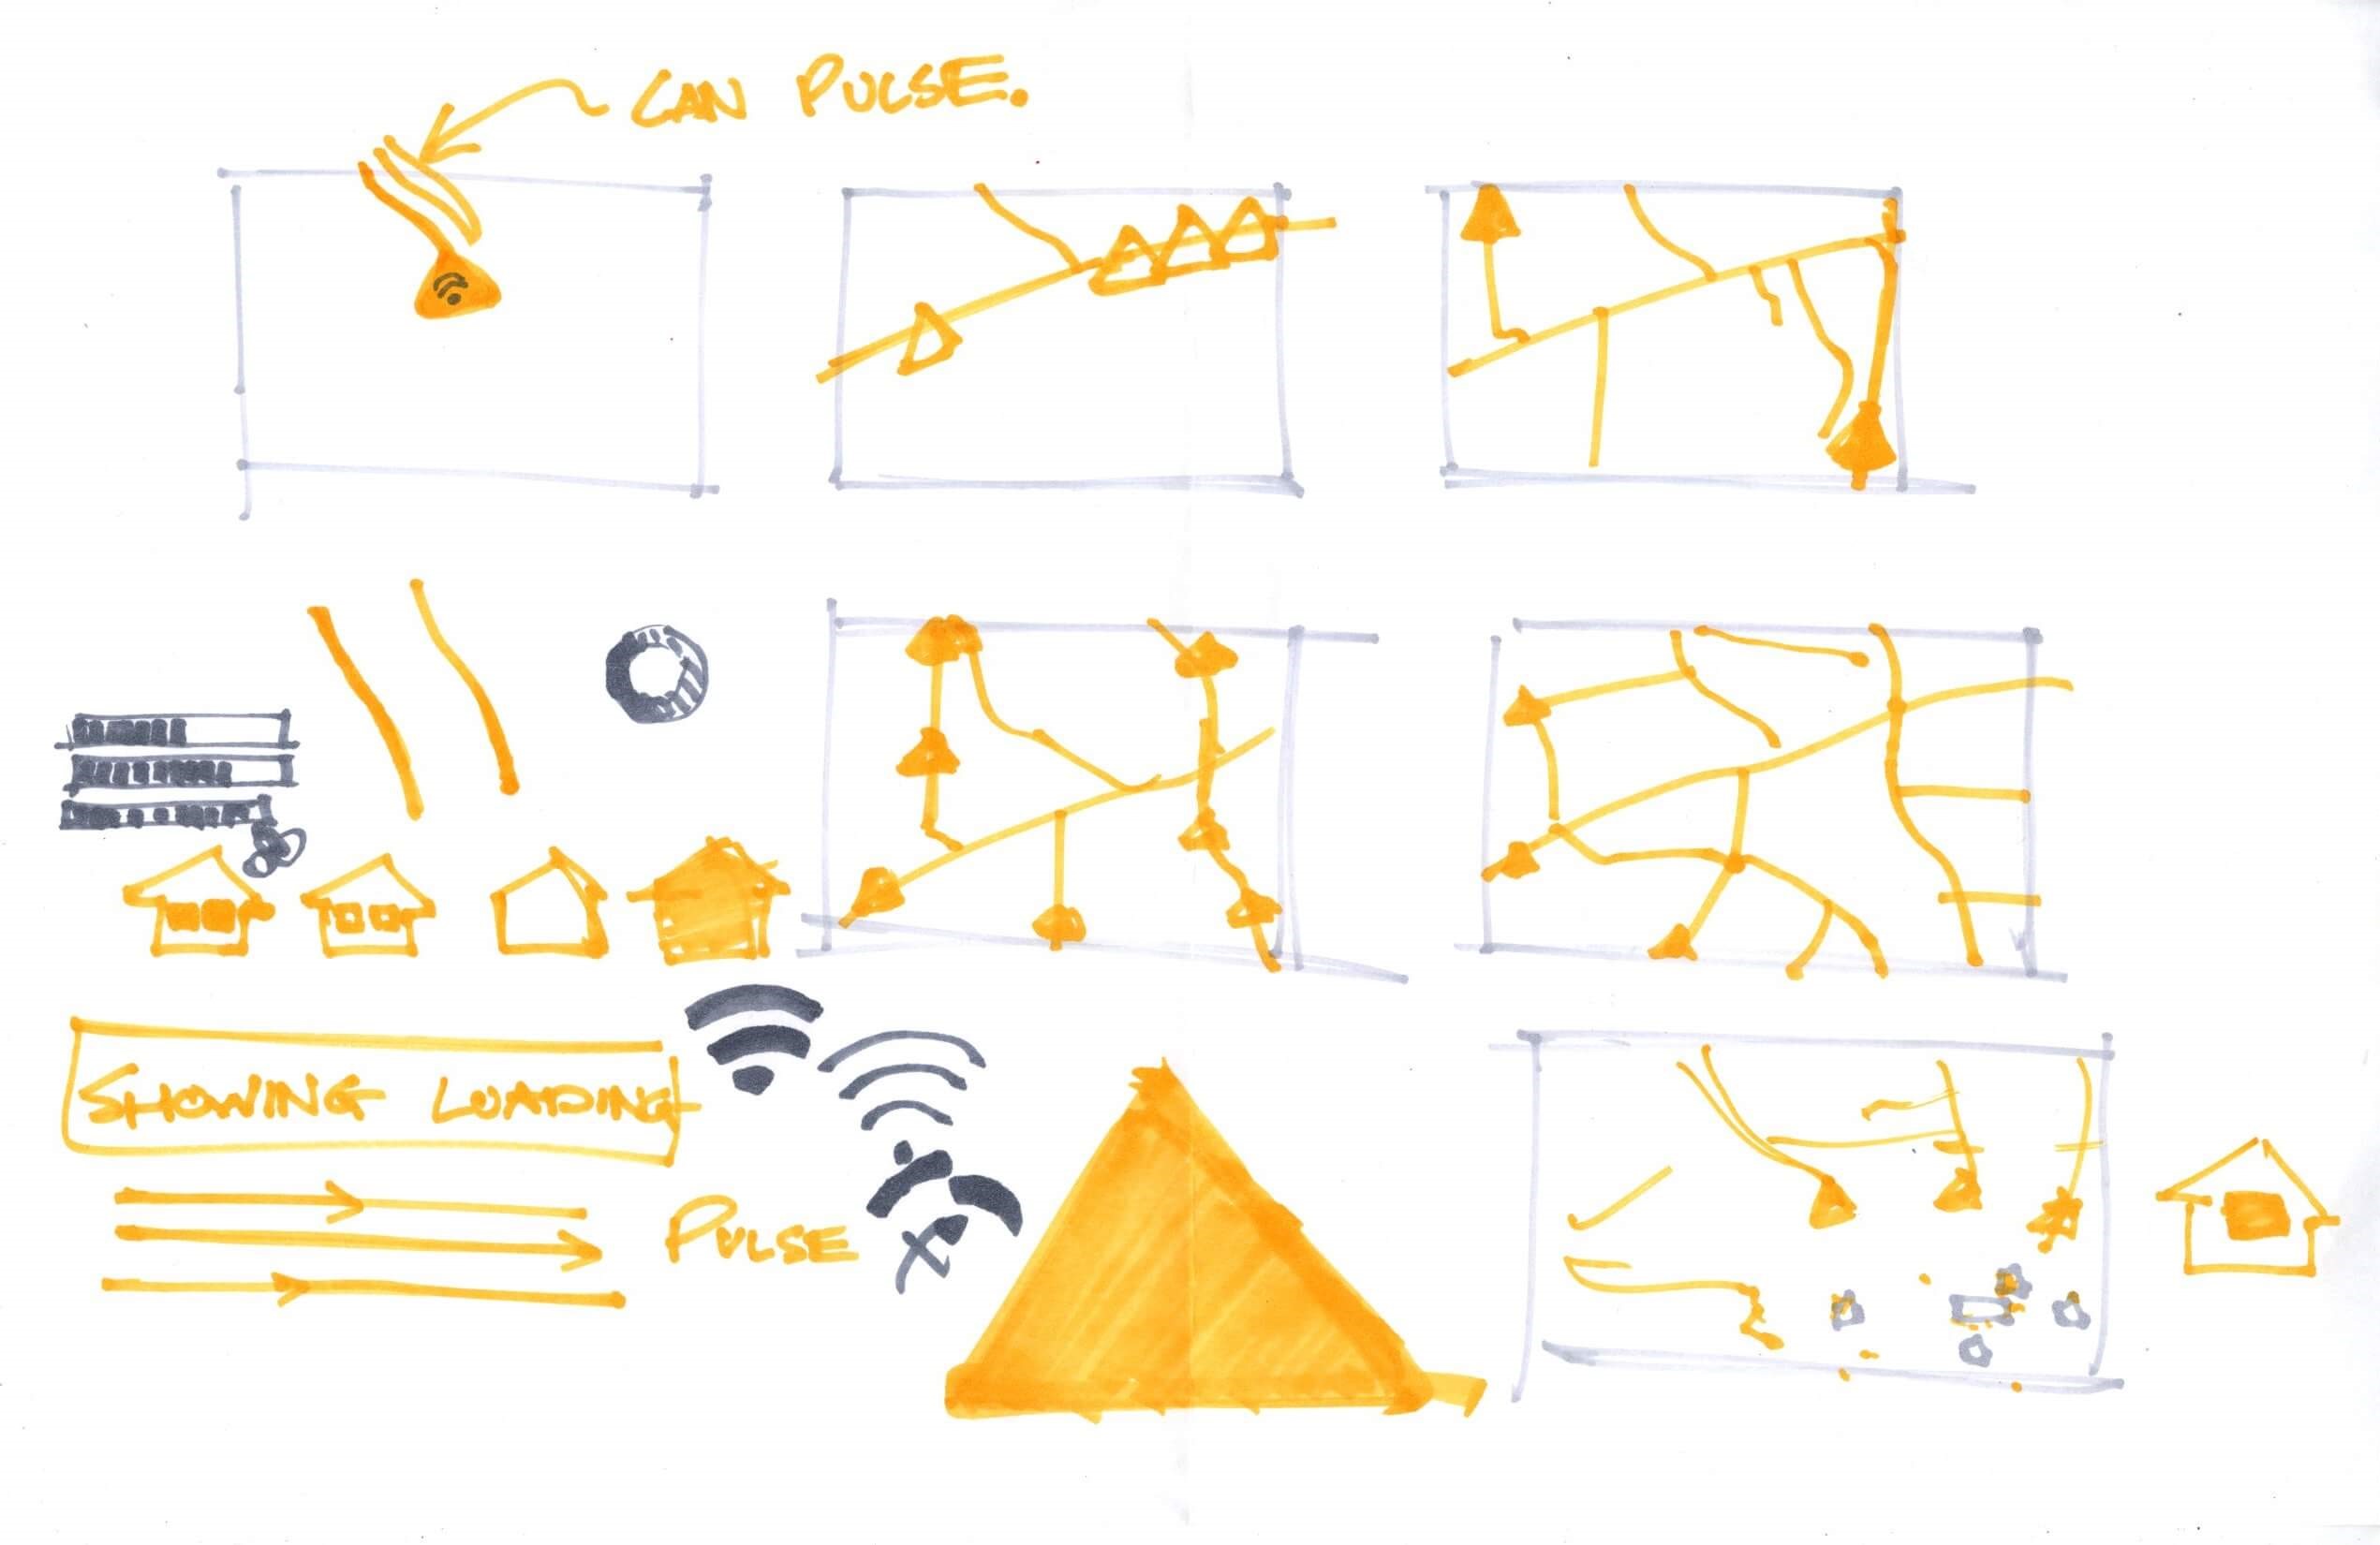 CAN PULSE.
SHOWING LOADING
PULSE